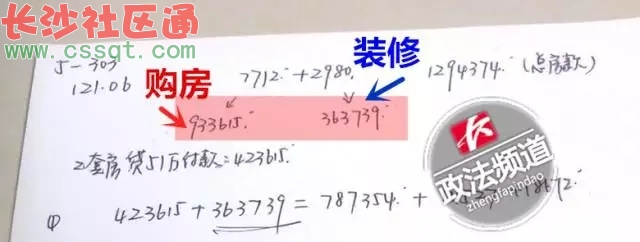 长沙社区通
www.cssqt.com
5-303
121.06 7712.+2980. 1294374.(总房款)
购房 装修
933615. 363739.
2套房贷51万付款=423615.
政法频道
zhengfapindao
① 423615+363739=787354.+